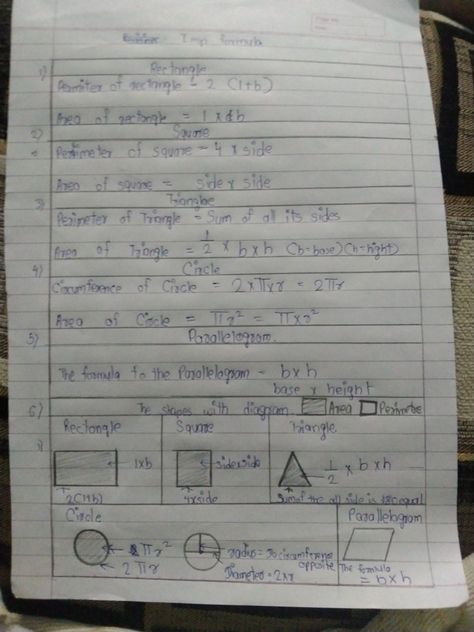 Imp formula
1) Rectangle
Permiter of rectangle = 2 (l+b)
Area of rectangle = l x b
2) Square
Perimeter of square = 4 x side
Area of square = side x side
3) Triangle
Perimeter of Triangle = Sum of all its sides
Area of Triangle = 1/2 x b x h (b=base) (h=hight)
4) Circle
Circumference of Circle = 2xπxr = 2πr
Area of Circle = πr² = πxr²
5) Parallelogram.
The formula to the Parallelogram = bxh
base x height
6) The shapes with diagram. Area Perimetre
1) Rectangle Square Triangle
lxb sidexside 1/2 x b x h
2(l+b) 4xside Sum of the all side is equal
Circle Parallelogram
πr² radius = circumference
2πr Diameter = 2xr opposite The formula
= bxh